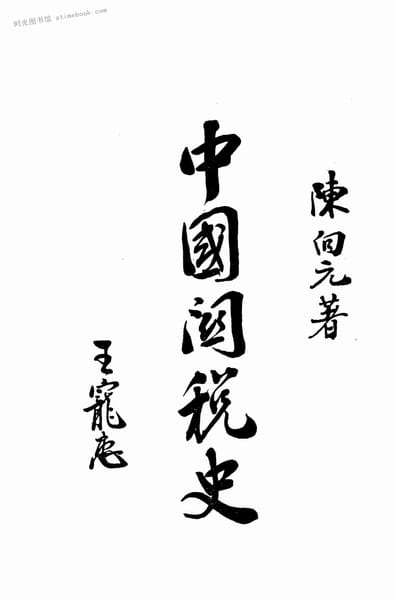 时光图书馆 atimebook.com
陳向元著
中國關税史
王寵惠